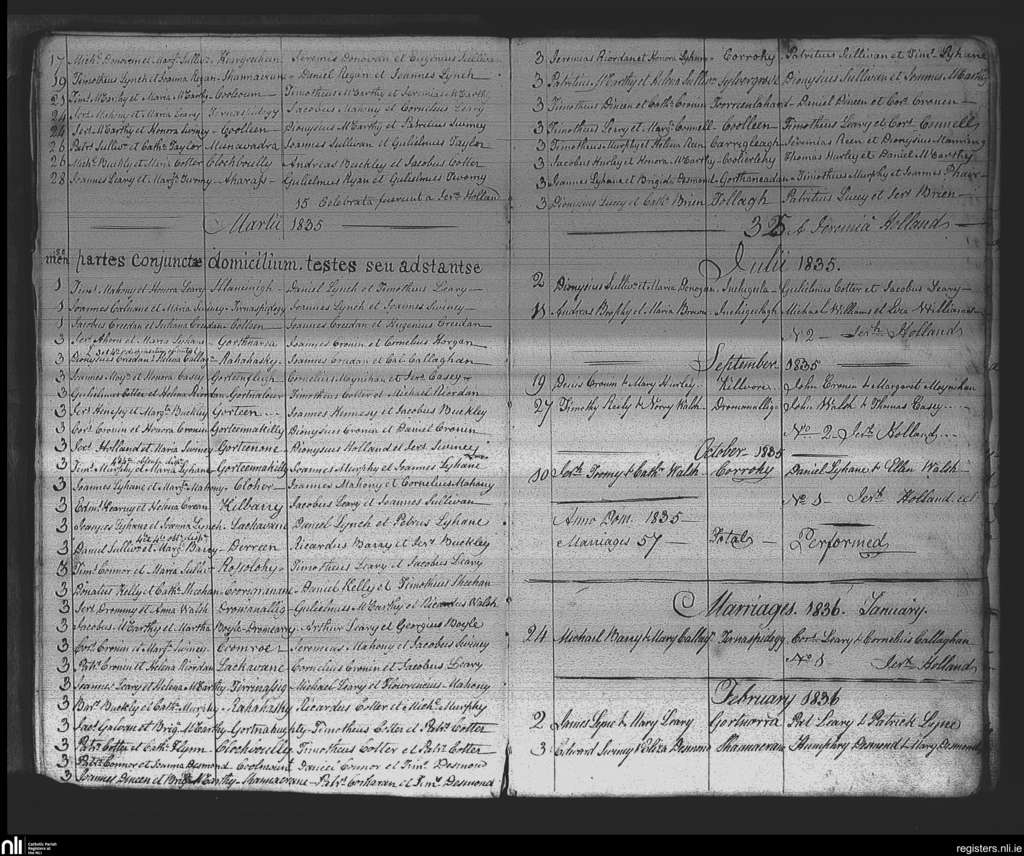 17 Mich.l Donovan et Marg.t Sulliv. Kongrechun Jeremes Donovan et Eugenius Sullivan
19 Timotheus Lynch et Joanna Regan Shannacrane Daniel Regan et Joannes Lynch
21 Tim.s McCarthy et Maria McCarthy Cooleoum Timotheus McCarthy et Jeremias McCarthy
24 Jer.h Mahony et Maria Leary Jacobus Mahony et Cornelius Leary
24 Jer.h McCarthy et Honora Swiney Coolleen Dionysius McCarthy et Patritius Swiney
26 Patr.s Sulliv. et Cath.a Taylor Menavadra Joannes Sullivan et Gulielmus Taylor
26 Mich.l Buckly et Maria Cotter Clochbrully Andreas Buckley et Jacobus Cotter
28 Joannes Leary et Marg.t Twomy Aharass Gulielmus Ryan et Gulielmus Twomy
15 Celebrata fuerunt a Jer.h Holland
Martii 1835
men partes Conjunctæ domicilium. testes seu adstantse
1 Tim.s Mahony et Honora Leary Daniel Lynch et Timotheus Leary
1 Joannes et Maria Swiney Tirnaspidegy Joannes Lynch et Joannes Swiney
1 Jacobus Creedan et Juliana Creedan Cooleen Joannes Creedan et Eugenius Creedan
3 Jer.h Ahern et Maria Lyhane Gorthnarea Joannes Cronin et Cornelius Horgan
3 Dionysius Creedan et Helena Callag. Rahahasky Joannes Creedan et Cal. Callaghan
3 Joannes Moy. et Honora Casey Cornelius Moynihan et Jer.h Casey
3 Gulielmus Cotter et Helena Riordan Gortnaloer Timotheus Cotter et Michael Riordan
3 Jer.h Henesy et Marg.t Buckley Gorteen Joannes Henesy et Jacobus Buckley
3 Cor.s Cronin et Honora Cronin Gorteenakilly Dionysius Cronin et Daniel Cronin
3 Jer.h Holland et Maria Swiney Gorteenone Dionysius Holland et Jer.h Swiney
3 Tim.s Murphy et Maria Lyhane Gorteenakilly Joannes Murphy et Joannes Lyhane
3 Joannes Lyhane et Marg.t Mahony Cloher Joannes Mahony et Cornelius Mahony
3 Edm.d Kearny et Helena Crean Kilbarry Jacobus Leary et Joannes Sullivan
3 Joannes Lyhane et Joanna Lynch Lackavane Daniel Lynch et Petrus Lyhane
3 Daniel Sulliv. et Marg.t Barry Derreen Ricardus Barry et Jer.h Buckley
3 Tim.s Connor et Maria Sulliv. Rosolohy Timotheus Leary et Jacobus Leary
3 Donatus Kelly et Cath.a Meehan Daniel Kelly et Timotheus Meehan
3 Jer.h Drommy et Anna Walsh Dromanallig Gulielmus McCarthy et Ricardus Walsh
3 Jacobus McCarthy et Martha Boyle Dromcarry Arthur Leary et Georgius Boyle
3 Cor.s Cronin et Marg.t Swiney Coomroe Jeremias Mahony et Jacobus Swiney
3 Pat.r Cronin et Helena Riordan Lackavane Cornelius Cronin et Jacobus Leary
3 Joannes Leary et Helena McCarthy Michael Leary et Flowrencius Mahony
3 Bar.s Buckly et Cath.a Murphy Rahahasky Ricardus Cotter et Mich.l Murphy
3 Jac.s et Brig. McCarthy Gortnahughty Timotheus Cotter et Patr.s Cotter
3 Patr.s Cotter et Cath.a Flynn Clochvoully Timotheus Cotter et Patr.s Cotter
3 Patr.s Connor et Joanna Desmond Coolmount Daniel Connor et Tim.s Desmond
3 Joannes Dineen et Brig. McCarthy Shannacrane Patr.s Corkeran et Tim.s Desmond
3 Jeremias Riordan et Honora Lyhane Corrohy Patritius Sullivan et Tim.s Lyhane
3 Patritius McCarthy et Helena Sulliv. Dionysius Sullivan et Joannes McCarthy
3 Timotheus Dineen et Cath.a Cronin Daniel Dineen et Cor.s Cronen
3 Timotheus Leary et Marg.t Connell Coolleen Timotheus Leary et Cor.s Connell
3 Timotheus Murphy et Helena Reen Carrygleagh Jeremias Reen et Dionysius Manning
3 Jacobus Hurley et Honora McCarthy Cooherlehy Thomas Hurley et Daniel McCarthy
3 Joannes Lyhane et Brigida Desmond Gorthaneadan Timotheus Murphy et Joannes
3 Dionysius Lucey et Cath.a Brien Tollagh Patritius Lucey et Jer.h Brien
35 A Jeremiâ Holland
Julii 1835.
2 Dionysius Sulliv. et Maria Donogan Inchigula Gulielmus Cotter et Jacobus Leary
11 Andreas Brophy et Maria Brown Inchigeelagh Michael Williams et Eliza Williams
No 2 Jer.h Holland
September 1835
19 Denis Cronin & Mary Hurley Killvore John Cronen & Margaret Moynihan
27 Timothy Reely & Nory Walsh Dromanallig John Walsh & Thomas Casey
No 2 Jer.h Holland
October 1835
10 Jer.h Toomy & Cath.a Walsh Corrohy Daniel Lyhane & Ellen Walsh
No 1 Jer.h Holland
Anno Dom. 1835
Marriages 57 Total Performed
Marriages. 1836. January.
24 Michael Barry & Mary Callag. Tirnaspidegy Cor.s Leary & Cornelius Callaghan
No 1 Jer.h Holland
February 1836
2 James Lyne & Mary Leary Gortnorra Art Leary & Patrick Lyne
3 Edward Swiney & Eliza Desmond Shannacrane Humphry Desmond & Mary Desmond
nli Catholic Parish Registers at the NLI
registers.nli.ie